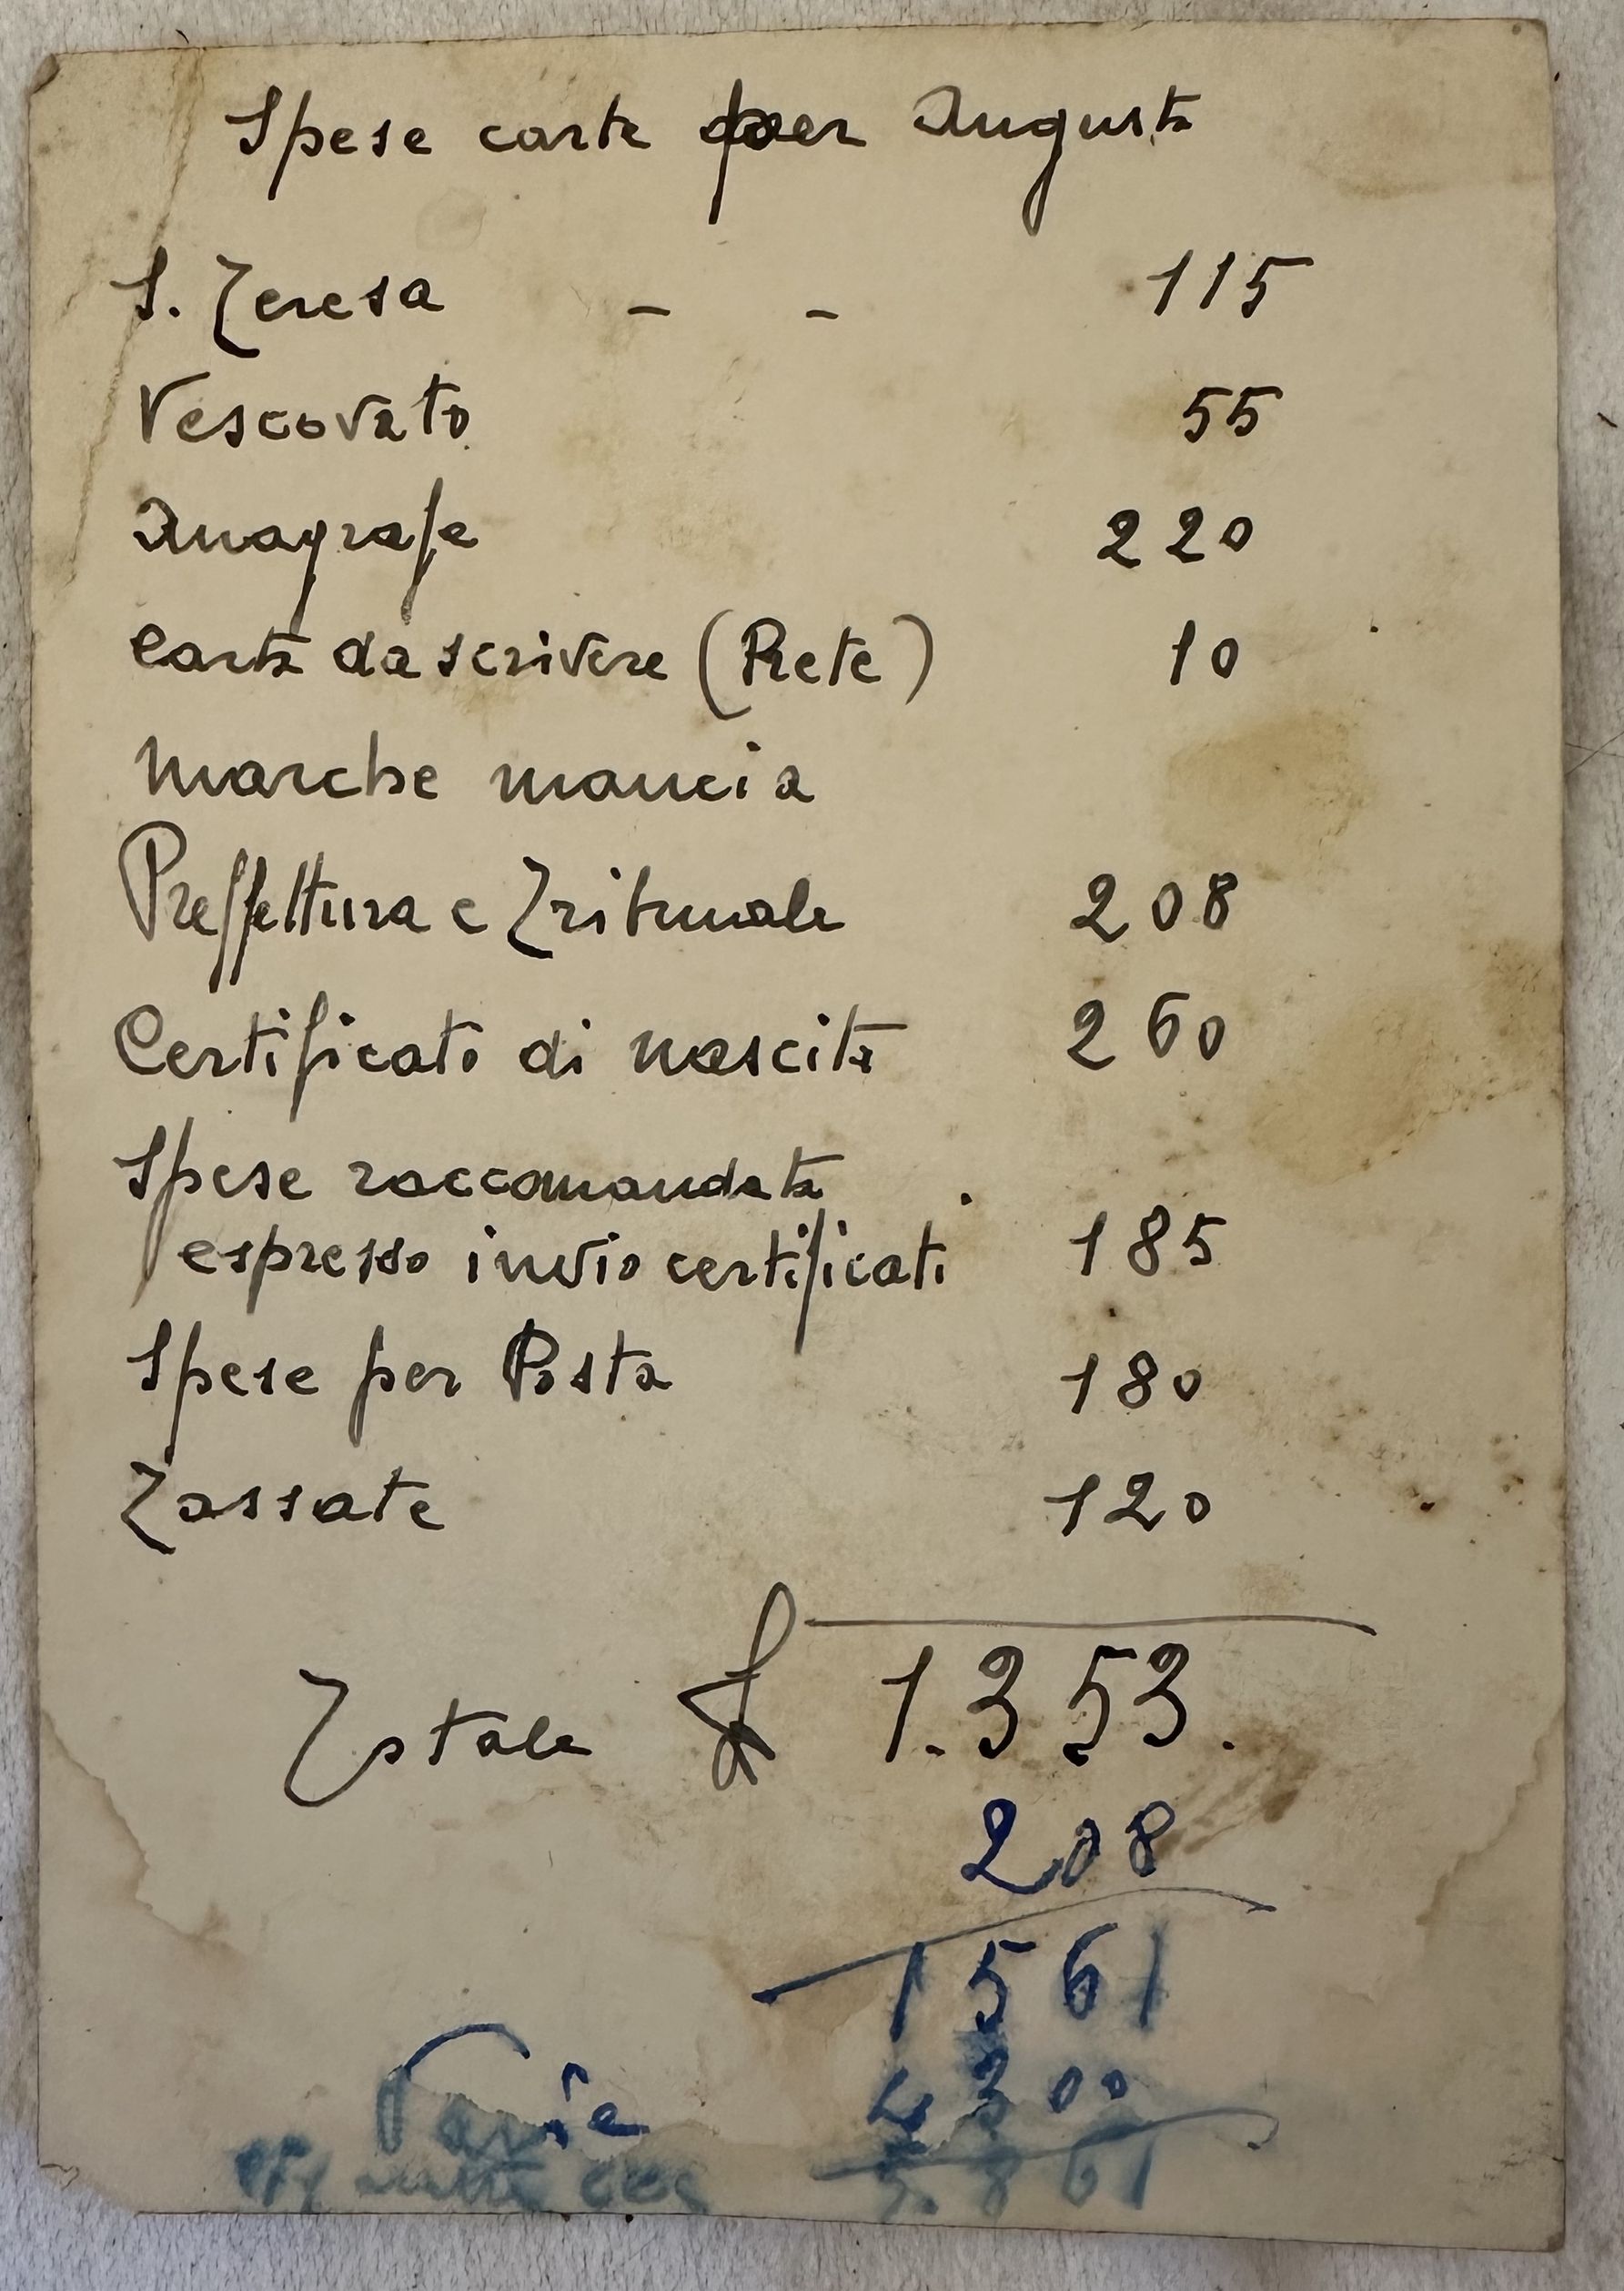 Spese carte per Augusta
S. Teresa - - 115
Vescovato 55
Anagrafe 220
Carta da scrivere (Prete) 10
Marche mancia
Preffettura e Tribunale 208
Certificato di nascita 260
Spese raccomandata
espresso invio certificati 185
Spese per Posta 180
Tassate 120
Totale £ 1.353.
208
1561
Varie 4300
5.861